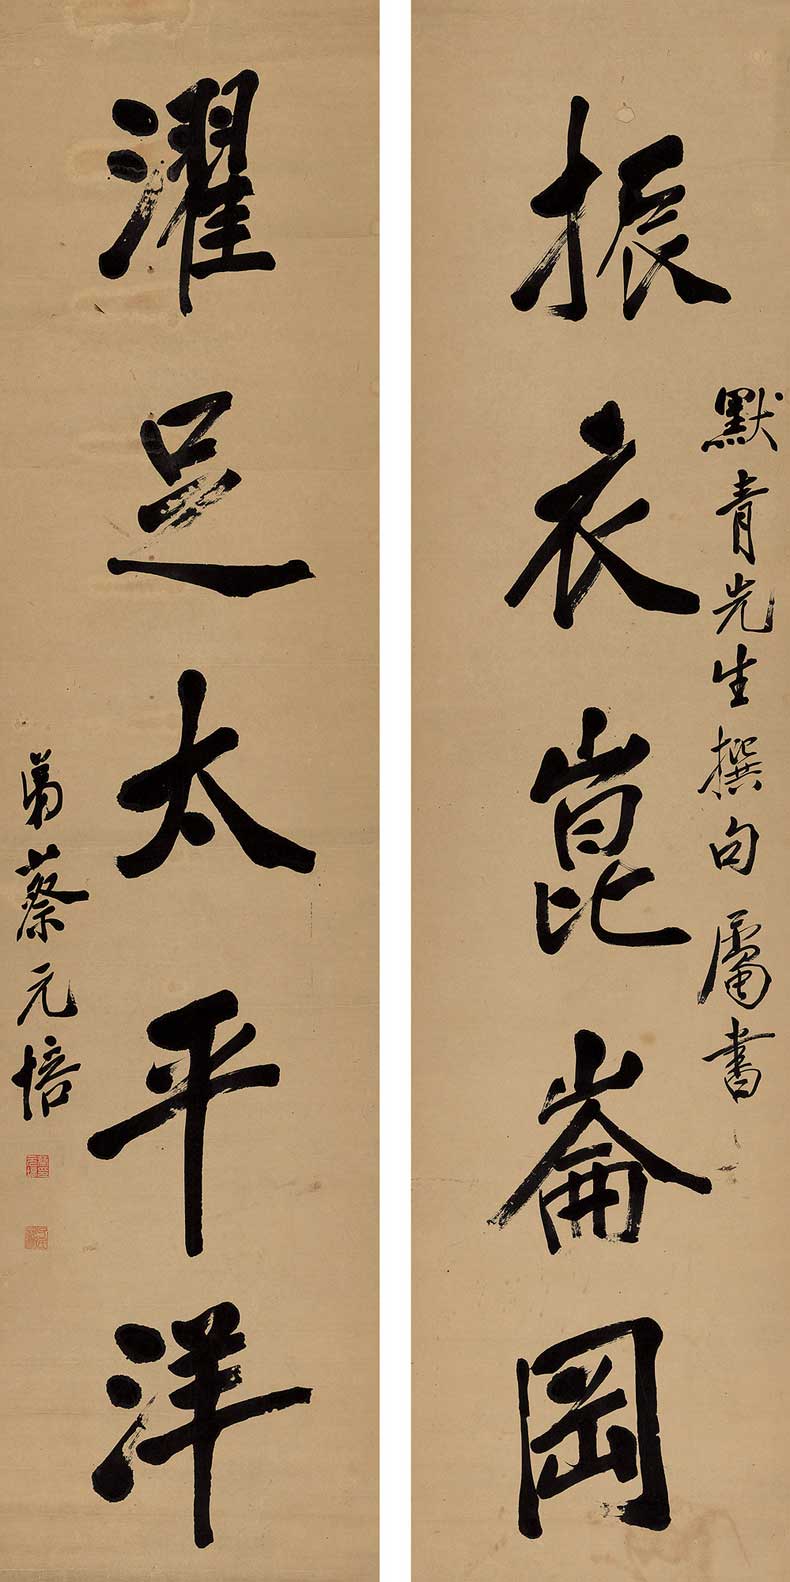 默青先生撰句屬書
振衣崑崙岡
濯足太平洋
弟蔡元培